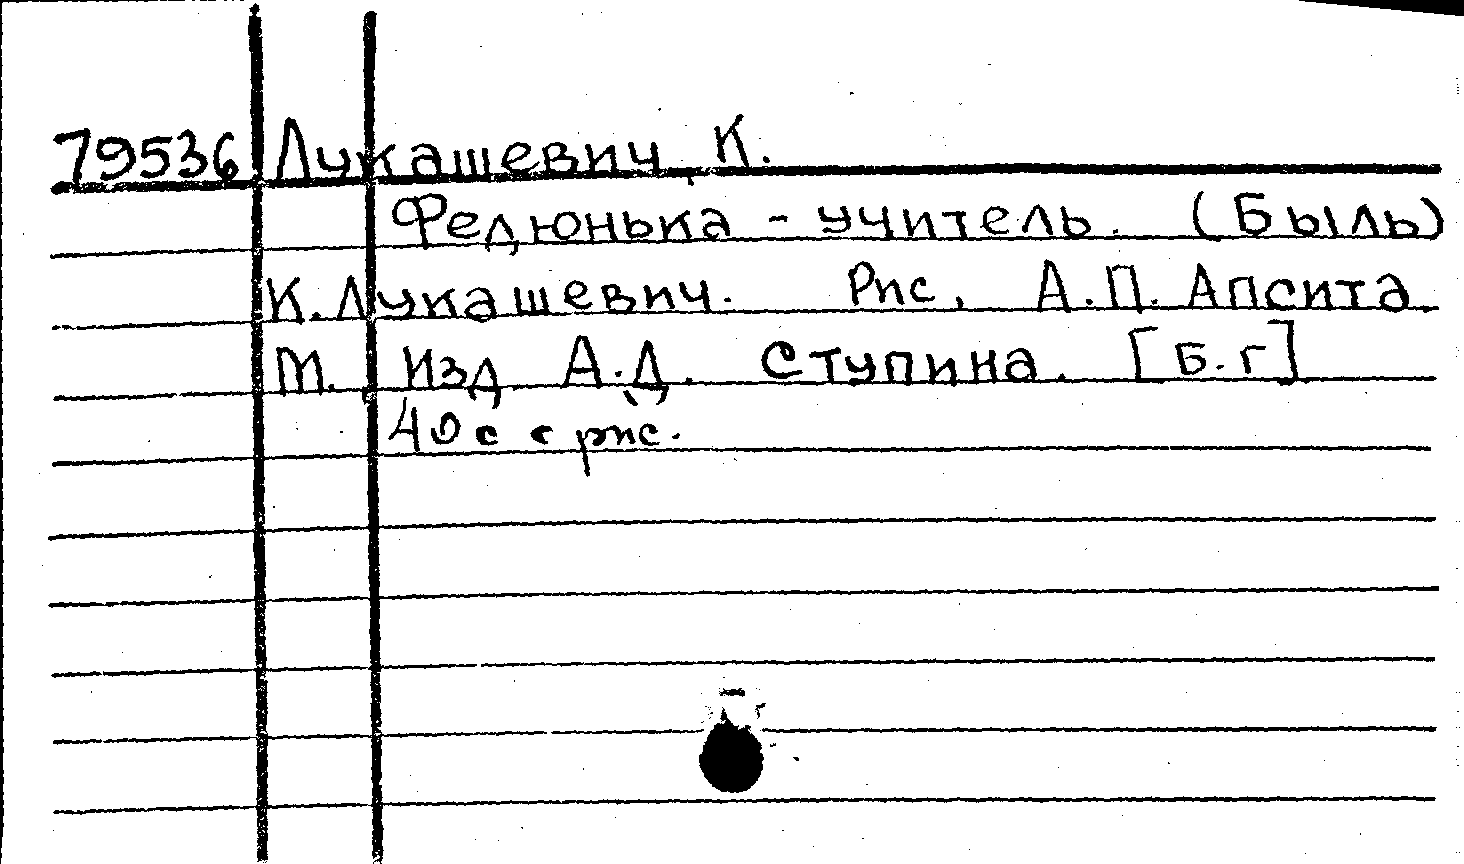 79536 Лукашевич, К.
Федюнька - учитель. (Быль)
К. Лукашевич. Рис. А.П. Апсита
М. Изд А.Д. Ступина. [Б.г]
40 с с рис.